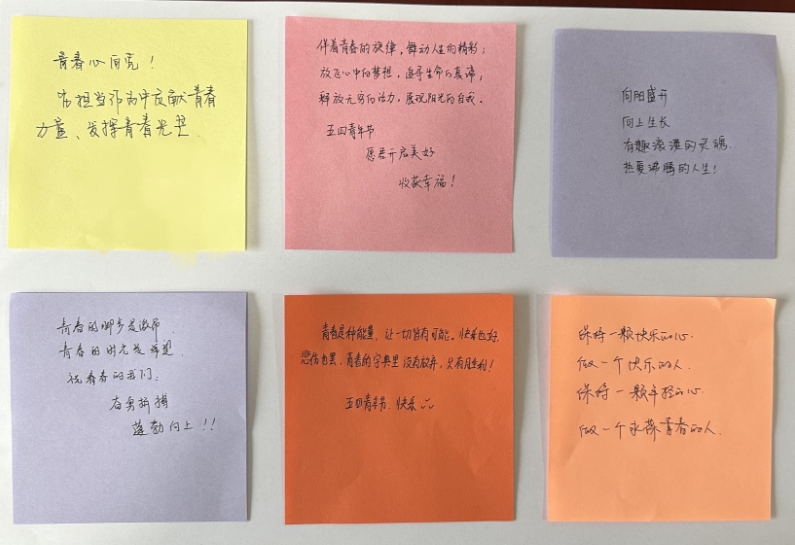 青春心向党！
在担当作为中贡献青春
力量、发挥青春光芒
伴着青春的旋律，舞动人生的精彩；
放飞心中的梦想，追寻生命的真谛；
释放无穷的活力，展现阳光的自我。
五四青年节
愿君开启美好
收获幸福！
向阳盛开
向上生长
有趣浪漫的灵魂
热爱沸腾的人生！
青春的脚步是激昂
青春的时光是
祝青春的我们：
奋勇拼搏
蓬勃向上！！
青春是种能量，让一切皆有可能。快乐也好，
悲伤也罢，青春的字典里没有放弃，只有月生利！
五四青年节 快乐
保持一颗快乐的心.
做一个快乐的人.
保持一颗年轻的心.
做一个永葆青春的人.